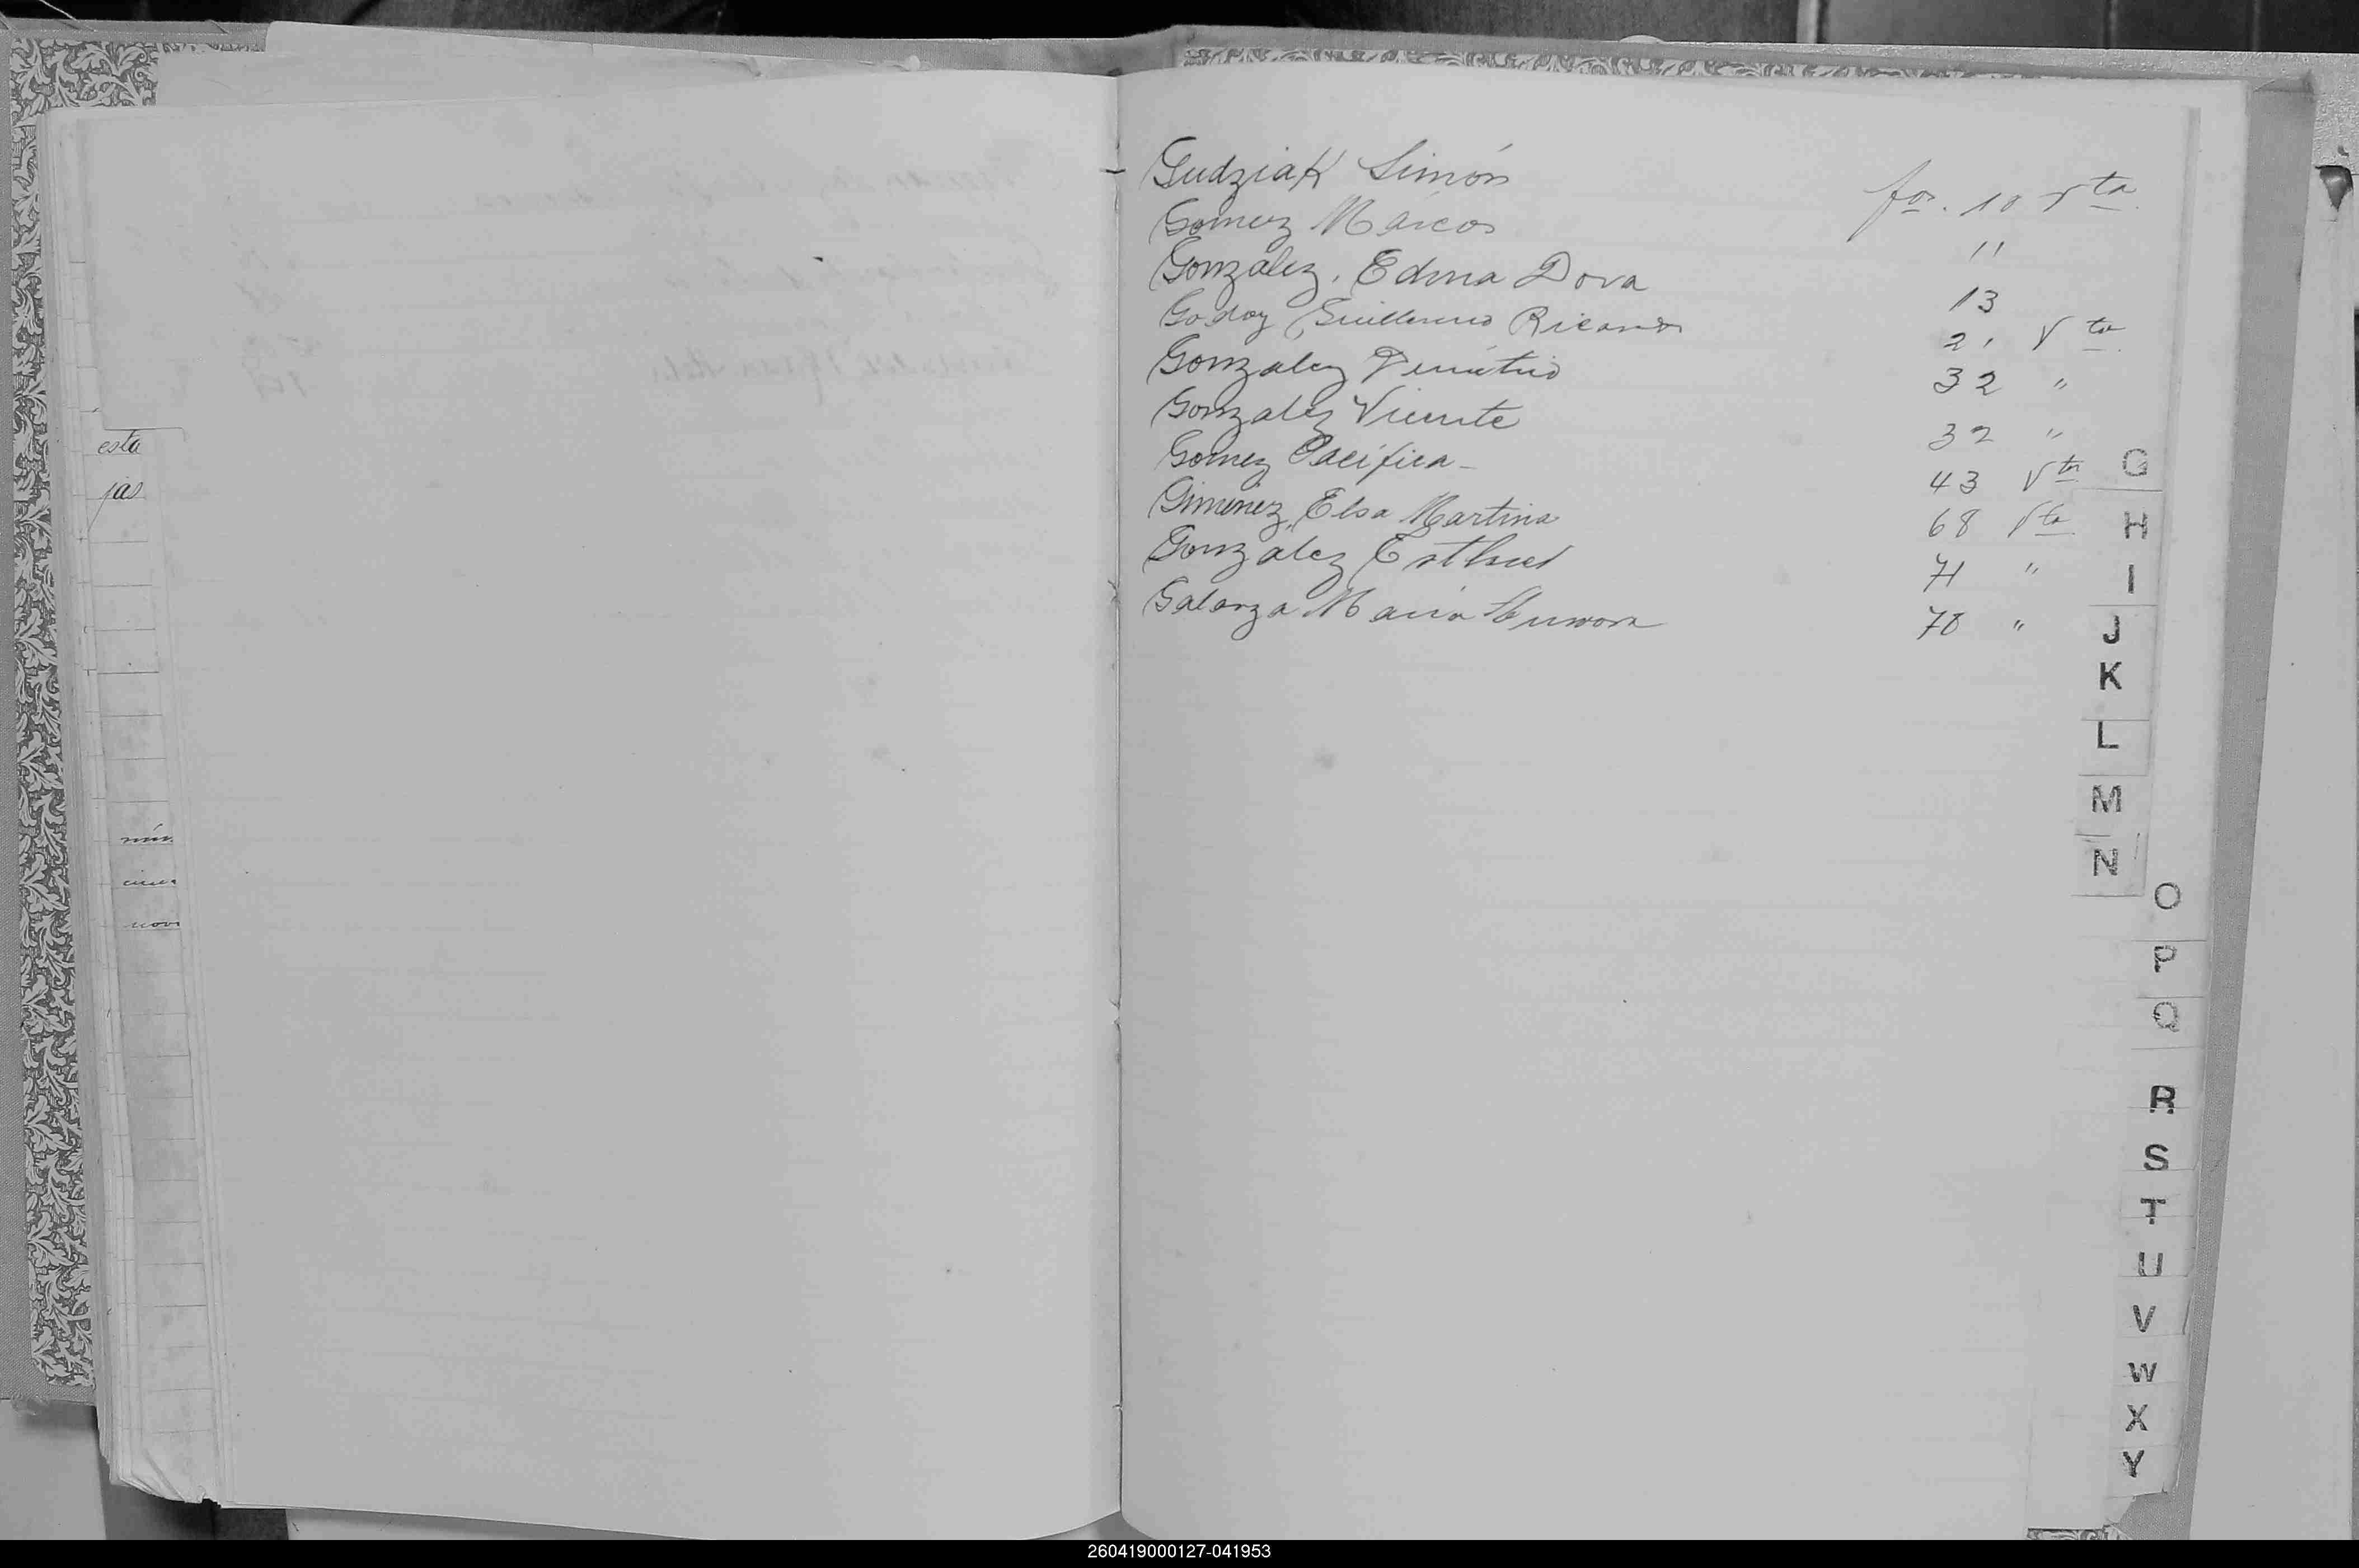 esta
jas
nov
Gudziak Simón fos. 10 Vta.
Gomez Marcos 11
González, Edma Dora 13
Godoy Guillermo Ricardo 21 Vta.
Gonzalez Demetrio 32 "
Gonzalez Vicente 32 "
Gomez Pacífica - 43 Vta
Giménez, Elsa Martina 68 Vta
Gonzalez Esther 71 "
Galarza Maria 78 "
G
H
I
J
K
L
M
N
O
P
Q
R
S
T
U
V
W
X
Y
260419000127-041953